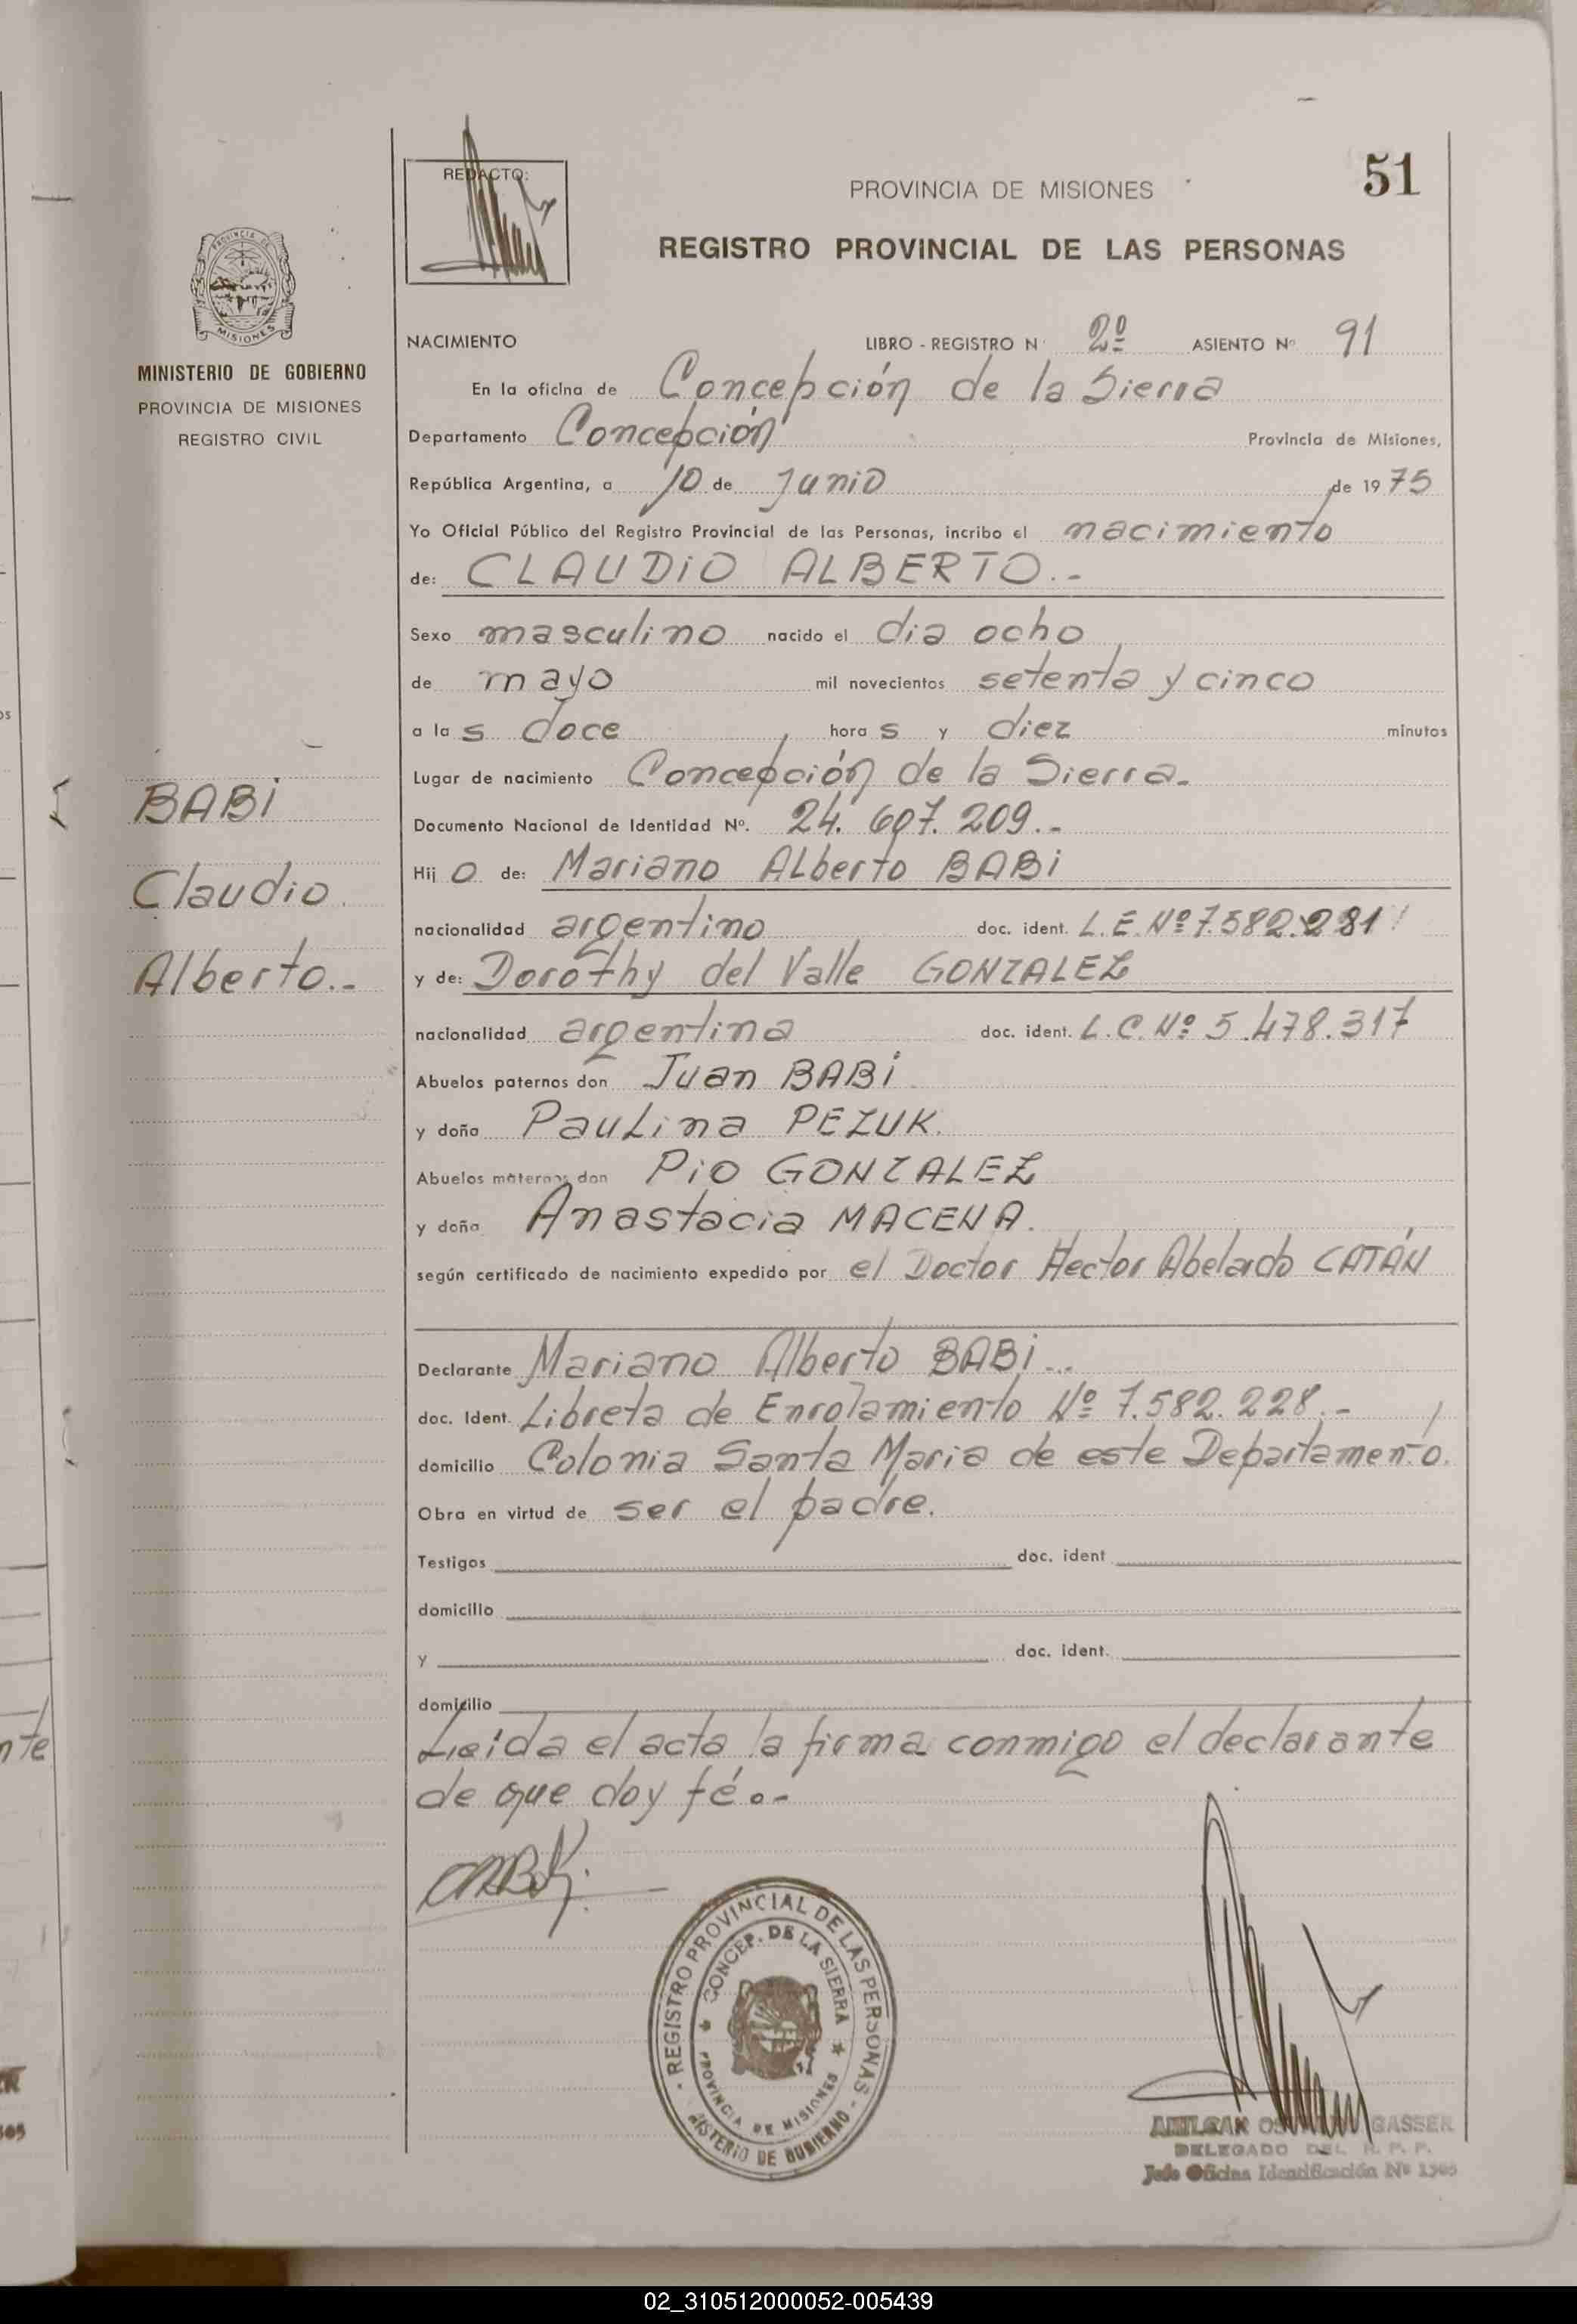 REDACTO:
PROVINCIA DE MISIONES
51
REGISTRO PROVINCIAL DE LAS PERSONAS
PROVINCIA DE
MISIONES
MINISTERIO DE GOBIERNO
PROVINCIA DE MISIONES
REGISTRO CIVIL
NACIMIENTO LIBRO - REGISTRO N° 2º ASIENTO Nº 91
En la oficina de Concepción de la Sierra
Departamento Concepción Provincia de Misiones,
República Argentina, a 10 de Junio de 1975
Yo Oficial Público del Registro Provincial de las Personas, incribo el nacimiento
de: CLAUDIO ALBERTO.-
Sexo masculino nacido el dia ocho
de mayo mil novecientos setenta y cinco
a las doce horas y diez minutos
Lugar de nacimiento Concepción de la Sierra.
Documento Nacional de Identidad Nº. 24.607.209.-
Hijo de: Mariano Alberto BABi
nacionalidad argentino doc. ident. L.E.Nº7.582.281
y de: Dorothy del Valle GONZALEZ
nacionalidad argentina doc. ident. L.C.Nº 5.478.317
Abuelos paternos don Juan BABi
y doña Paulina PEZUK.
Abuelos maternos don Pio GONZALEZ
y doña Anastacia MACENA.
según certificado de nacimiento expedido por el Doctor Hector Abelardo CATÁN
Declarante Mariano Alberto BABi..
doc. Ident. Libreta de Enrolamiento Nº 7.582.228.-
domicilio Colonia Santa Maria de este Departamento.
Obra en virtud de ser el padre.
Testigos doc. ident
domicilio
y doc. ident.
domicilio
Leida el acta la firma conmigo el declarante
de que doy fé.-
BABi
Claudio
Alberto.-
REGISTRO PROVINCIAL DE LAS PERSONAS
CONCEP. DE LA SIERRA
PROVINCIA DE MISIONES
MINISTERIO DE GOBIERNO
GASSER
DELEGADO DEL R. P. P.
Jefe Oficina Identificación Nº 1505
nte
02_310512000052-005439